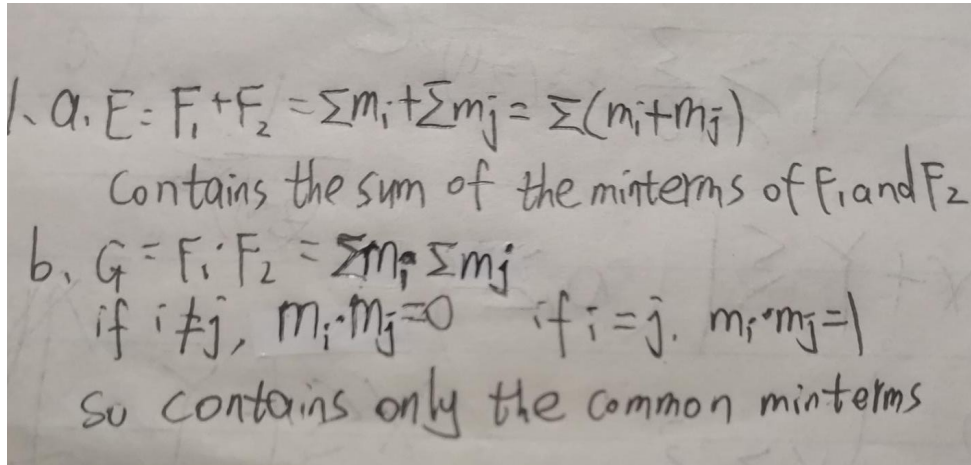 1. a. E = F₁ + F₂ = Σmᵢ + Σmⱼ = Σ(mᵢ + mⱼ)
Contains the sum of the minterms of F₁ and F₂
b. G = F₁ · F₂ = Σmᵢ Σmⱼ
if i ≠ j, mᵢ · mⱼ = 0 if i = j. mᵢ · mⱼ = 1
So contains only the common minterms